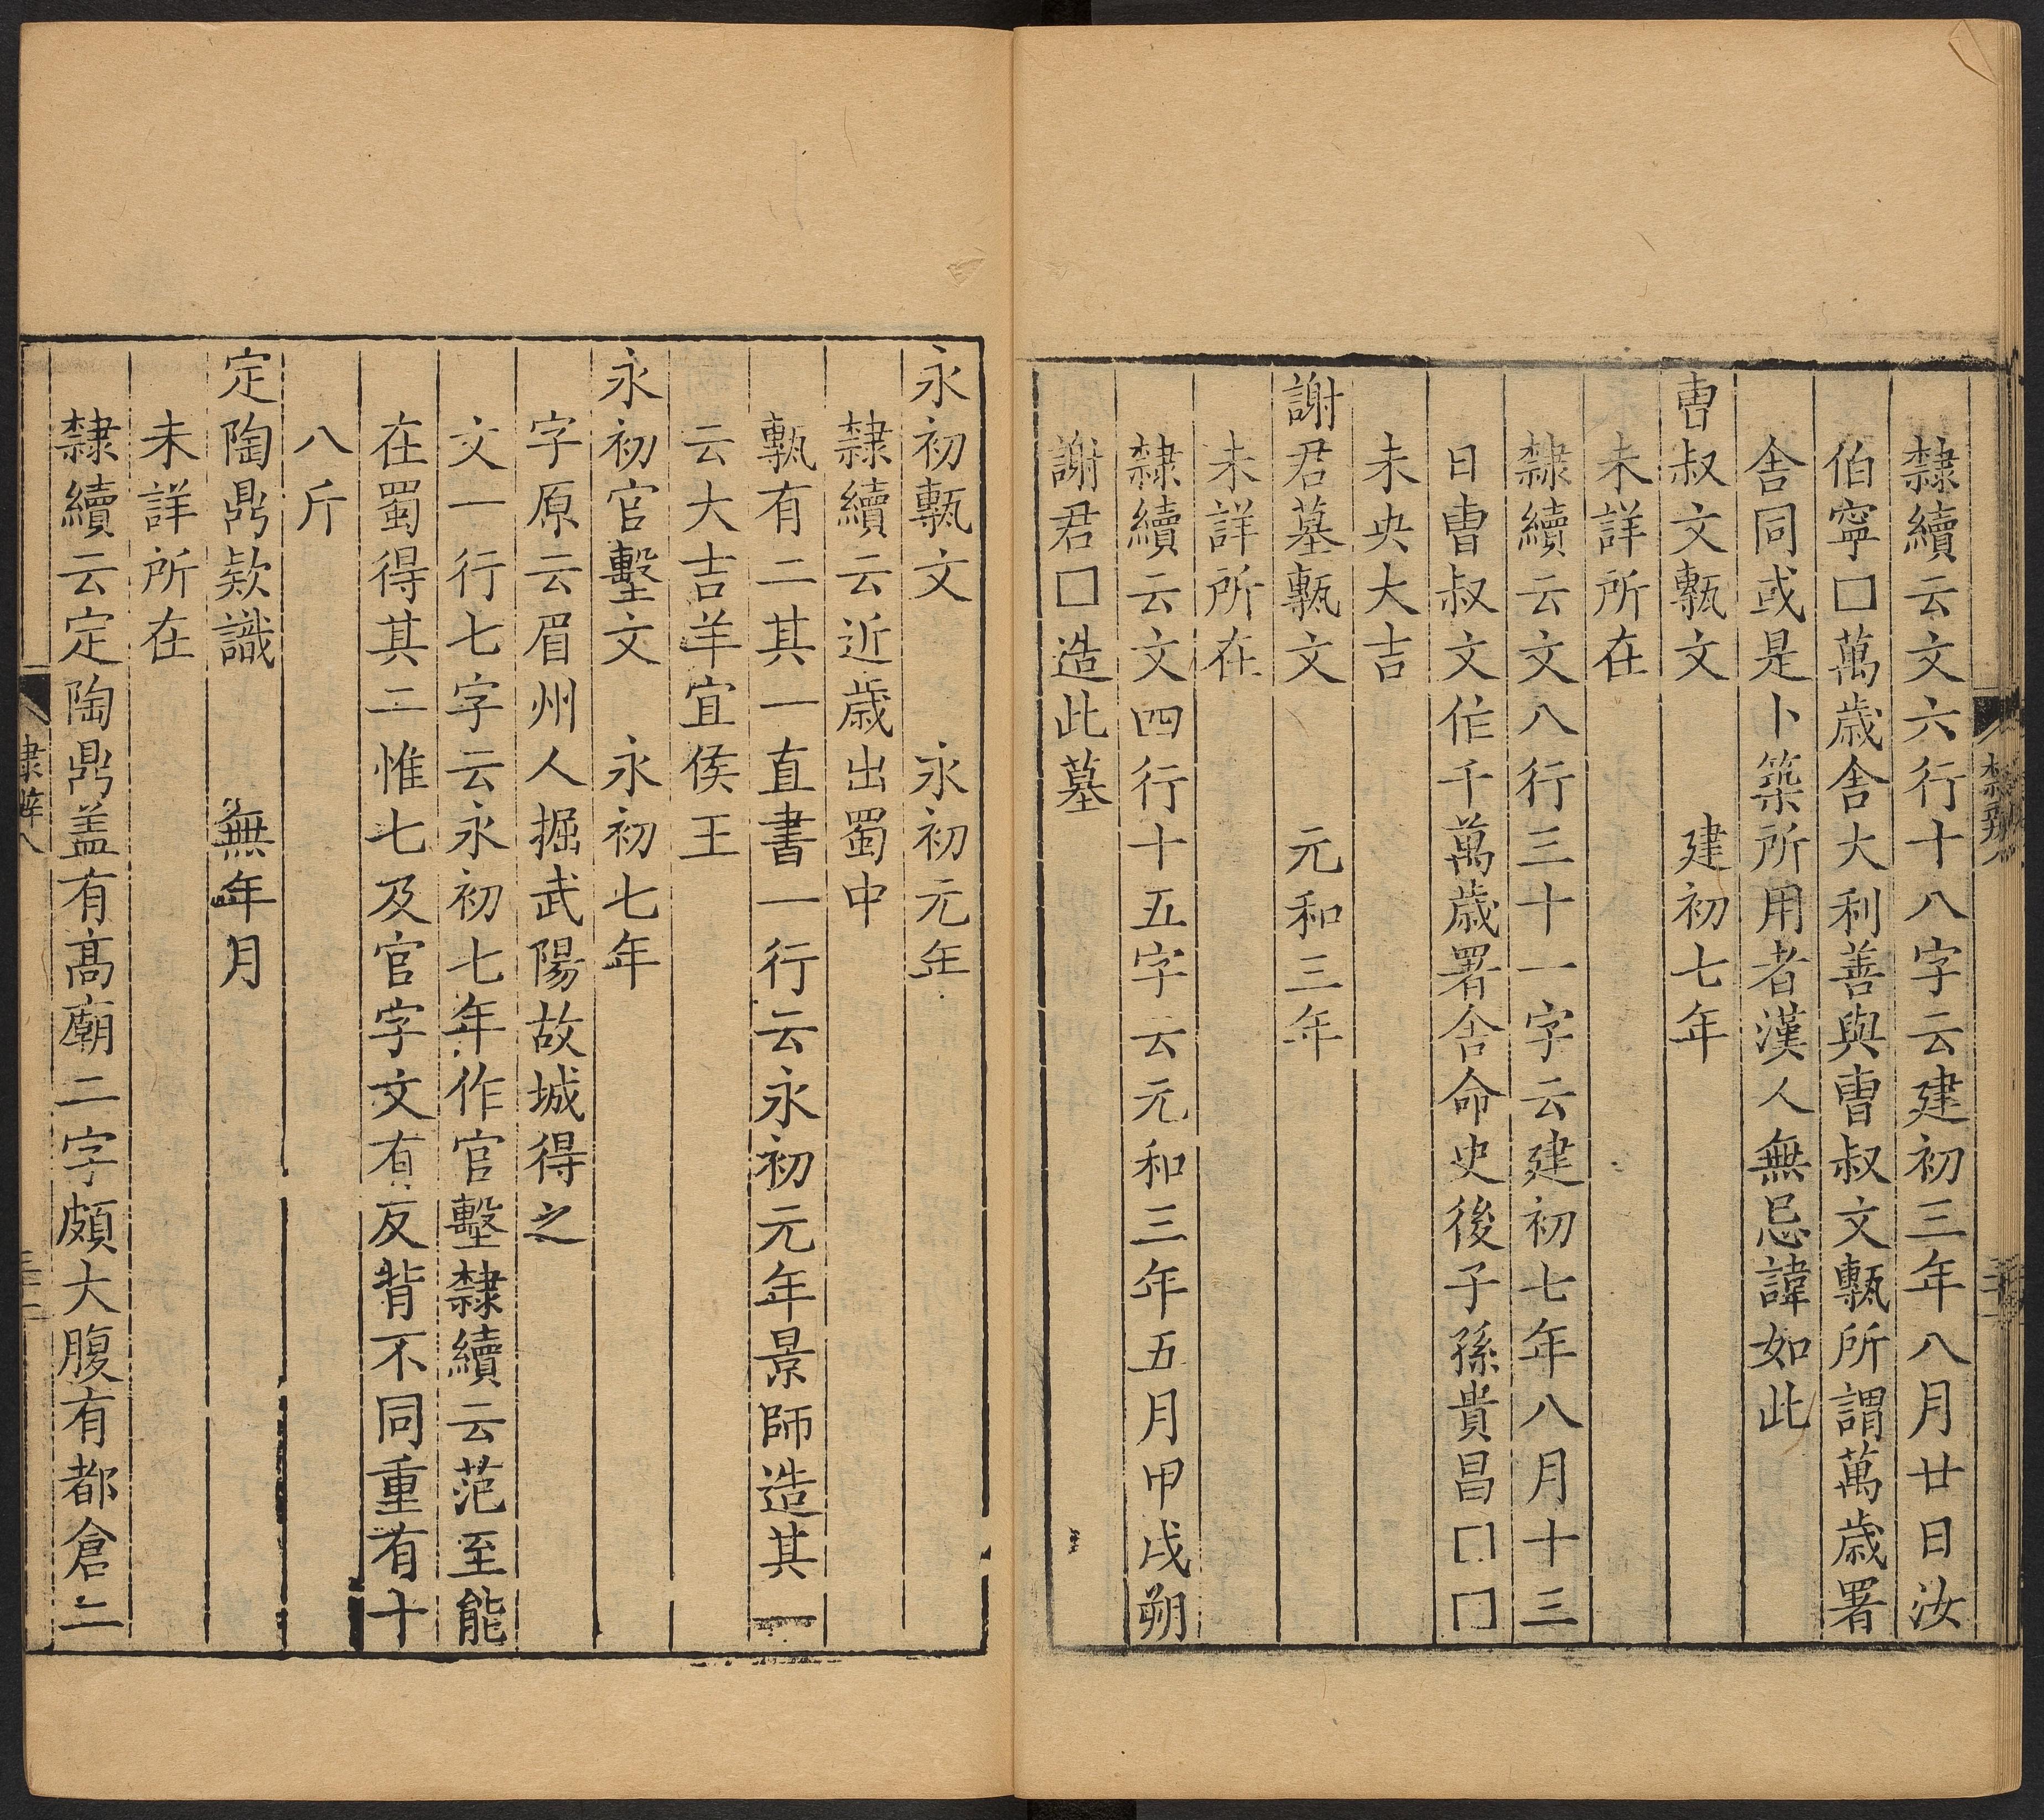 隸續云文六行十八字云建初三年八月廿日汝
伯寜囗萬歳舎大利善與曺叔文甎所謂萬歳署
舎同或是卜築所用者漢人無忌諱如此
曺叔文甎文 建初七年
未詳所在
隸續云文八行三十一字云建初七年八月十三
日曺叔文作千萬歳署舎命史後子孫貴昌囗囗
未央大吉
謝君墓甎文 元和三年
未詳所在
隸續云文四行十五字云元和三年五月甲戌朔
謝君囗造此墓
永初甎文 永初元年
隸續云近歳出蜀中
甎有二其一直書一行云永初元年景師造其一
云大吉羊宜侯王
永初官墼文 永初七年
字原云眉州人掘武陽故城得之
文一行七字云永初七年作官墼隸續云范至能
在蜀得其二惟七及官字文有反背不同重有十
八斤
定陶鼎欵識 無年月
未詳所在
隸續云定陶鼎盖有髙廟二字頗大腹有都倉二